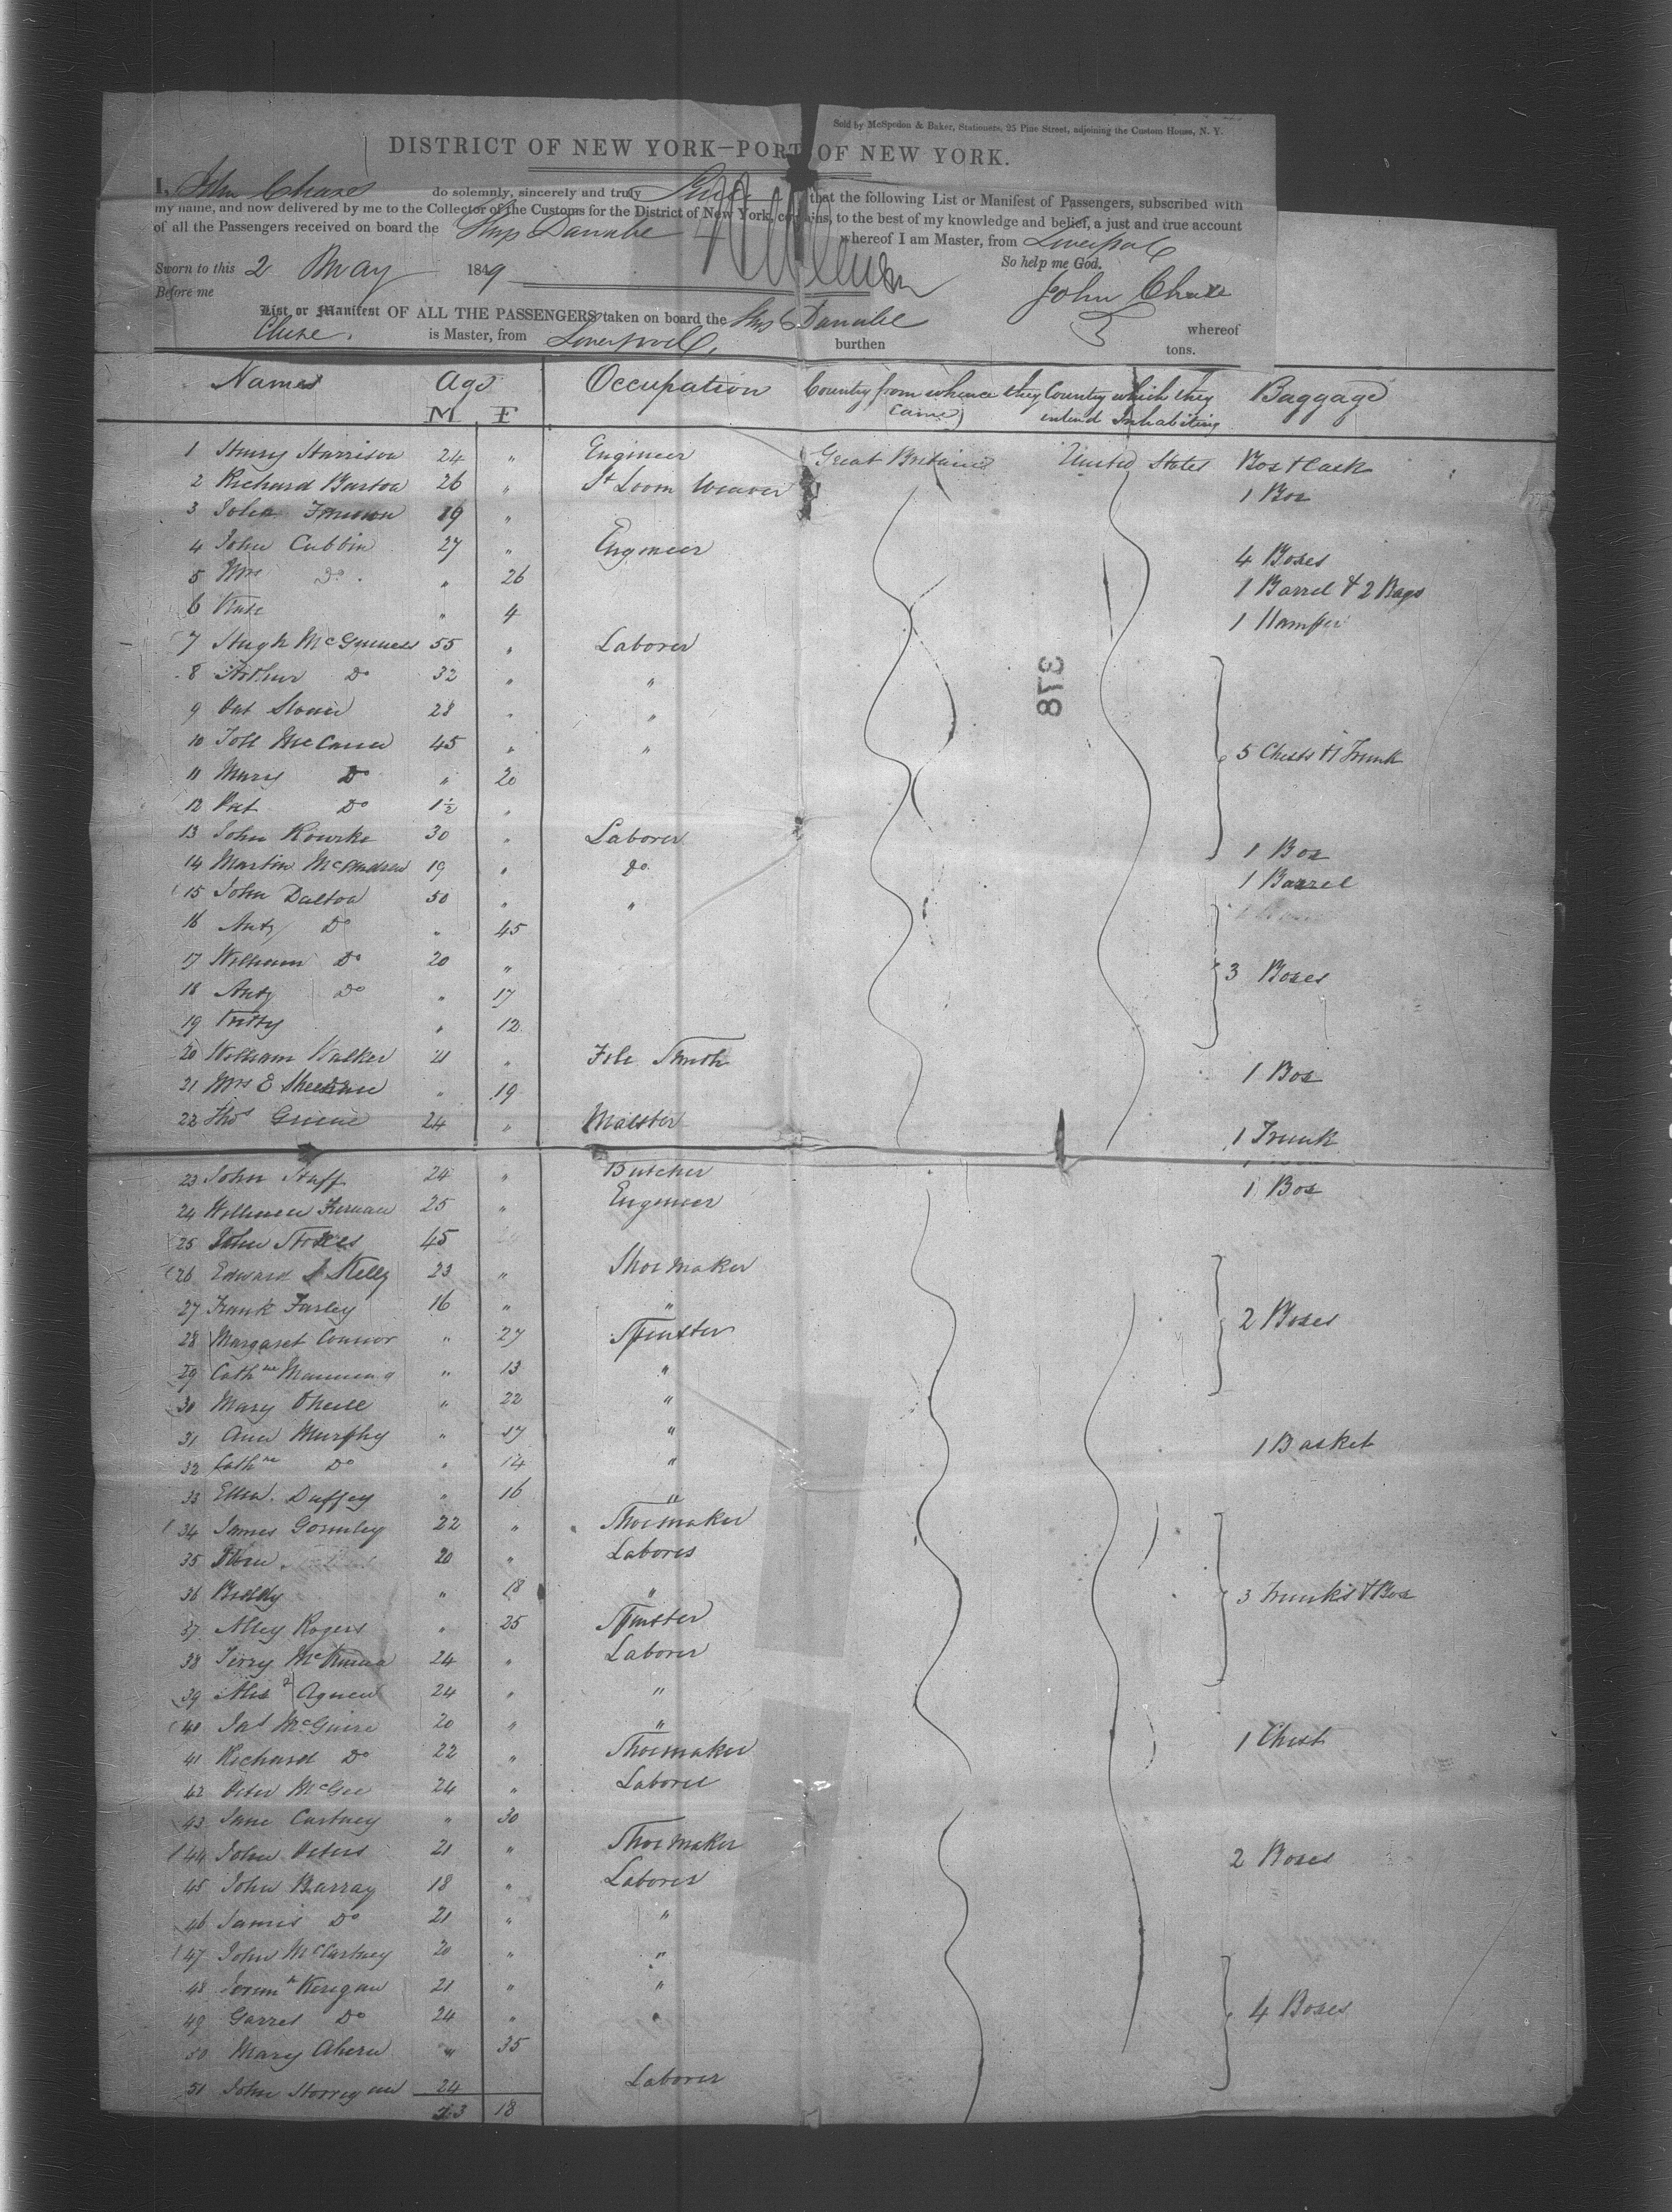 Sold by McSpedon & Baker, Stationers, 25 Pine Street, adjoining the Custom House, N. Y.
DISTRICT OF NEW YORK—PORT OF NEW YORK.
I, John Chase do solemnly, sincerely and truly that the following List or Manifest of Passengers, subscribed with
my name, and now delivered by me to the Collector of the Customs for the District of New York, contains, to the best of my knowledge and belief, a just and true account
of all the Passengers received on board the Ship Danube whereof I am Master, from Liverpool
So help me God.
Sworn to this 2 May 1849
Before me
John Chase
List or Manifest OF ALL THE PASSENGERS taken on board the Ship Danube whereof
Chase. is Master, from Liverpool, burthen tons.
Names Age Occupation Country from whence they Came Country which they intend Inhabiting Baggage
M F
1 Henry Harrison 24 " Engineer Great Britain United States Box & Cask
2 Richard Barton 26 " Loom Weaver 1 Box
3 John 19 "
4 John Cubbin 27 " Engineer 4 Boxes
5 Mrs Do " 26 1 Barrel & 2 Bags
6 " 4 1 Hamper
7 Hugh McGuiness 55 " Laborer
8 Arthur Do 32 " "
9 Pat 28 " "
10 McCann 45 " " 5 Chests & 1 Trunk
11 Mary Do " 20
12 Pat Do 1½ "
13 John Rourke 30 " Laborer 1 Box
14 Martin McAndrew 19 " Do 1 Barrel
15 John Dalton 50 " "
16 Do " 45
17 William Do 20 " 3 Boxes
18 Do " 17
19 " 12
20 William Walker 21 " File Smith 1 Box
21 Mrs E " 19
22 Thos Greene 24 " Malster 1 Trunk
23 John Staff 24 " Butcher 1 Box
24 William Kernan 25 " Engineer
25 John 45
26 Edward Kelly 23 " Shoemaker
27 Frank Farley 16 " " 2 Boxes
28 Margaret Connor " 27 Spinster
29 Cathne Manning " 13 "
30 Mary ONeill " 22 "
31 Ann Murphy " 17 " 1 Basket
32 Cathne Do " 14 "
33 Ellen Duffey " 16 "
34 James Gormley 22 " Shoemaker
35 20 " Laborer
36 Biddy " 18 " 3 Trunks & Box
37 Alley Rogers " 25 Spinster
38 Terry McKenna 24 " Laborer
39 Agnew 24 " "
40 Jas McGuire 20 " " 1 Chest
41 Richard Do 22 " Shoemaker
42 Peter McGee 24 " Laborer
43 Jane Cartney " 30
44 John Peters 21 " Shoemaker 2 Boxes
45 John Barray 18 " Laborer
46 James Do 21 " "
47 John McCartney 20 " "
48 Kerigan 21 " "
49 Garret Do 24 " " 4 Boxes
50 Mary Ahern " 35
51 John Horrigan 24 Laborer
33 18
318